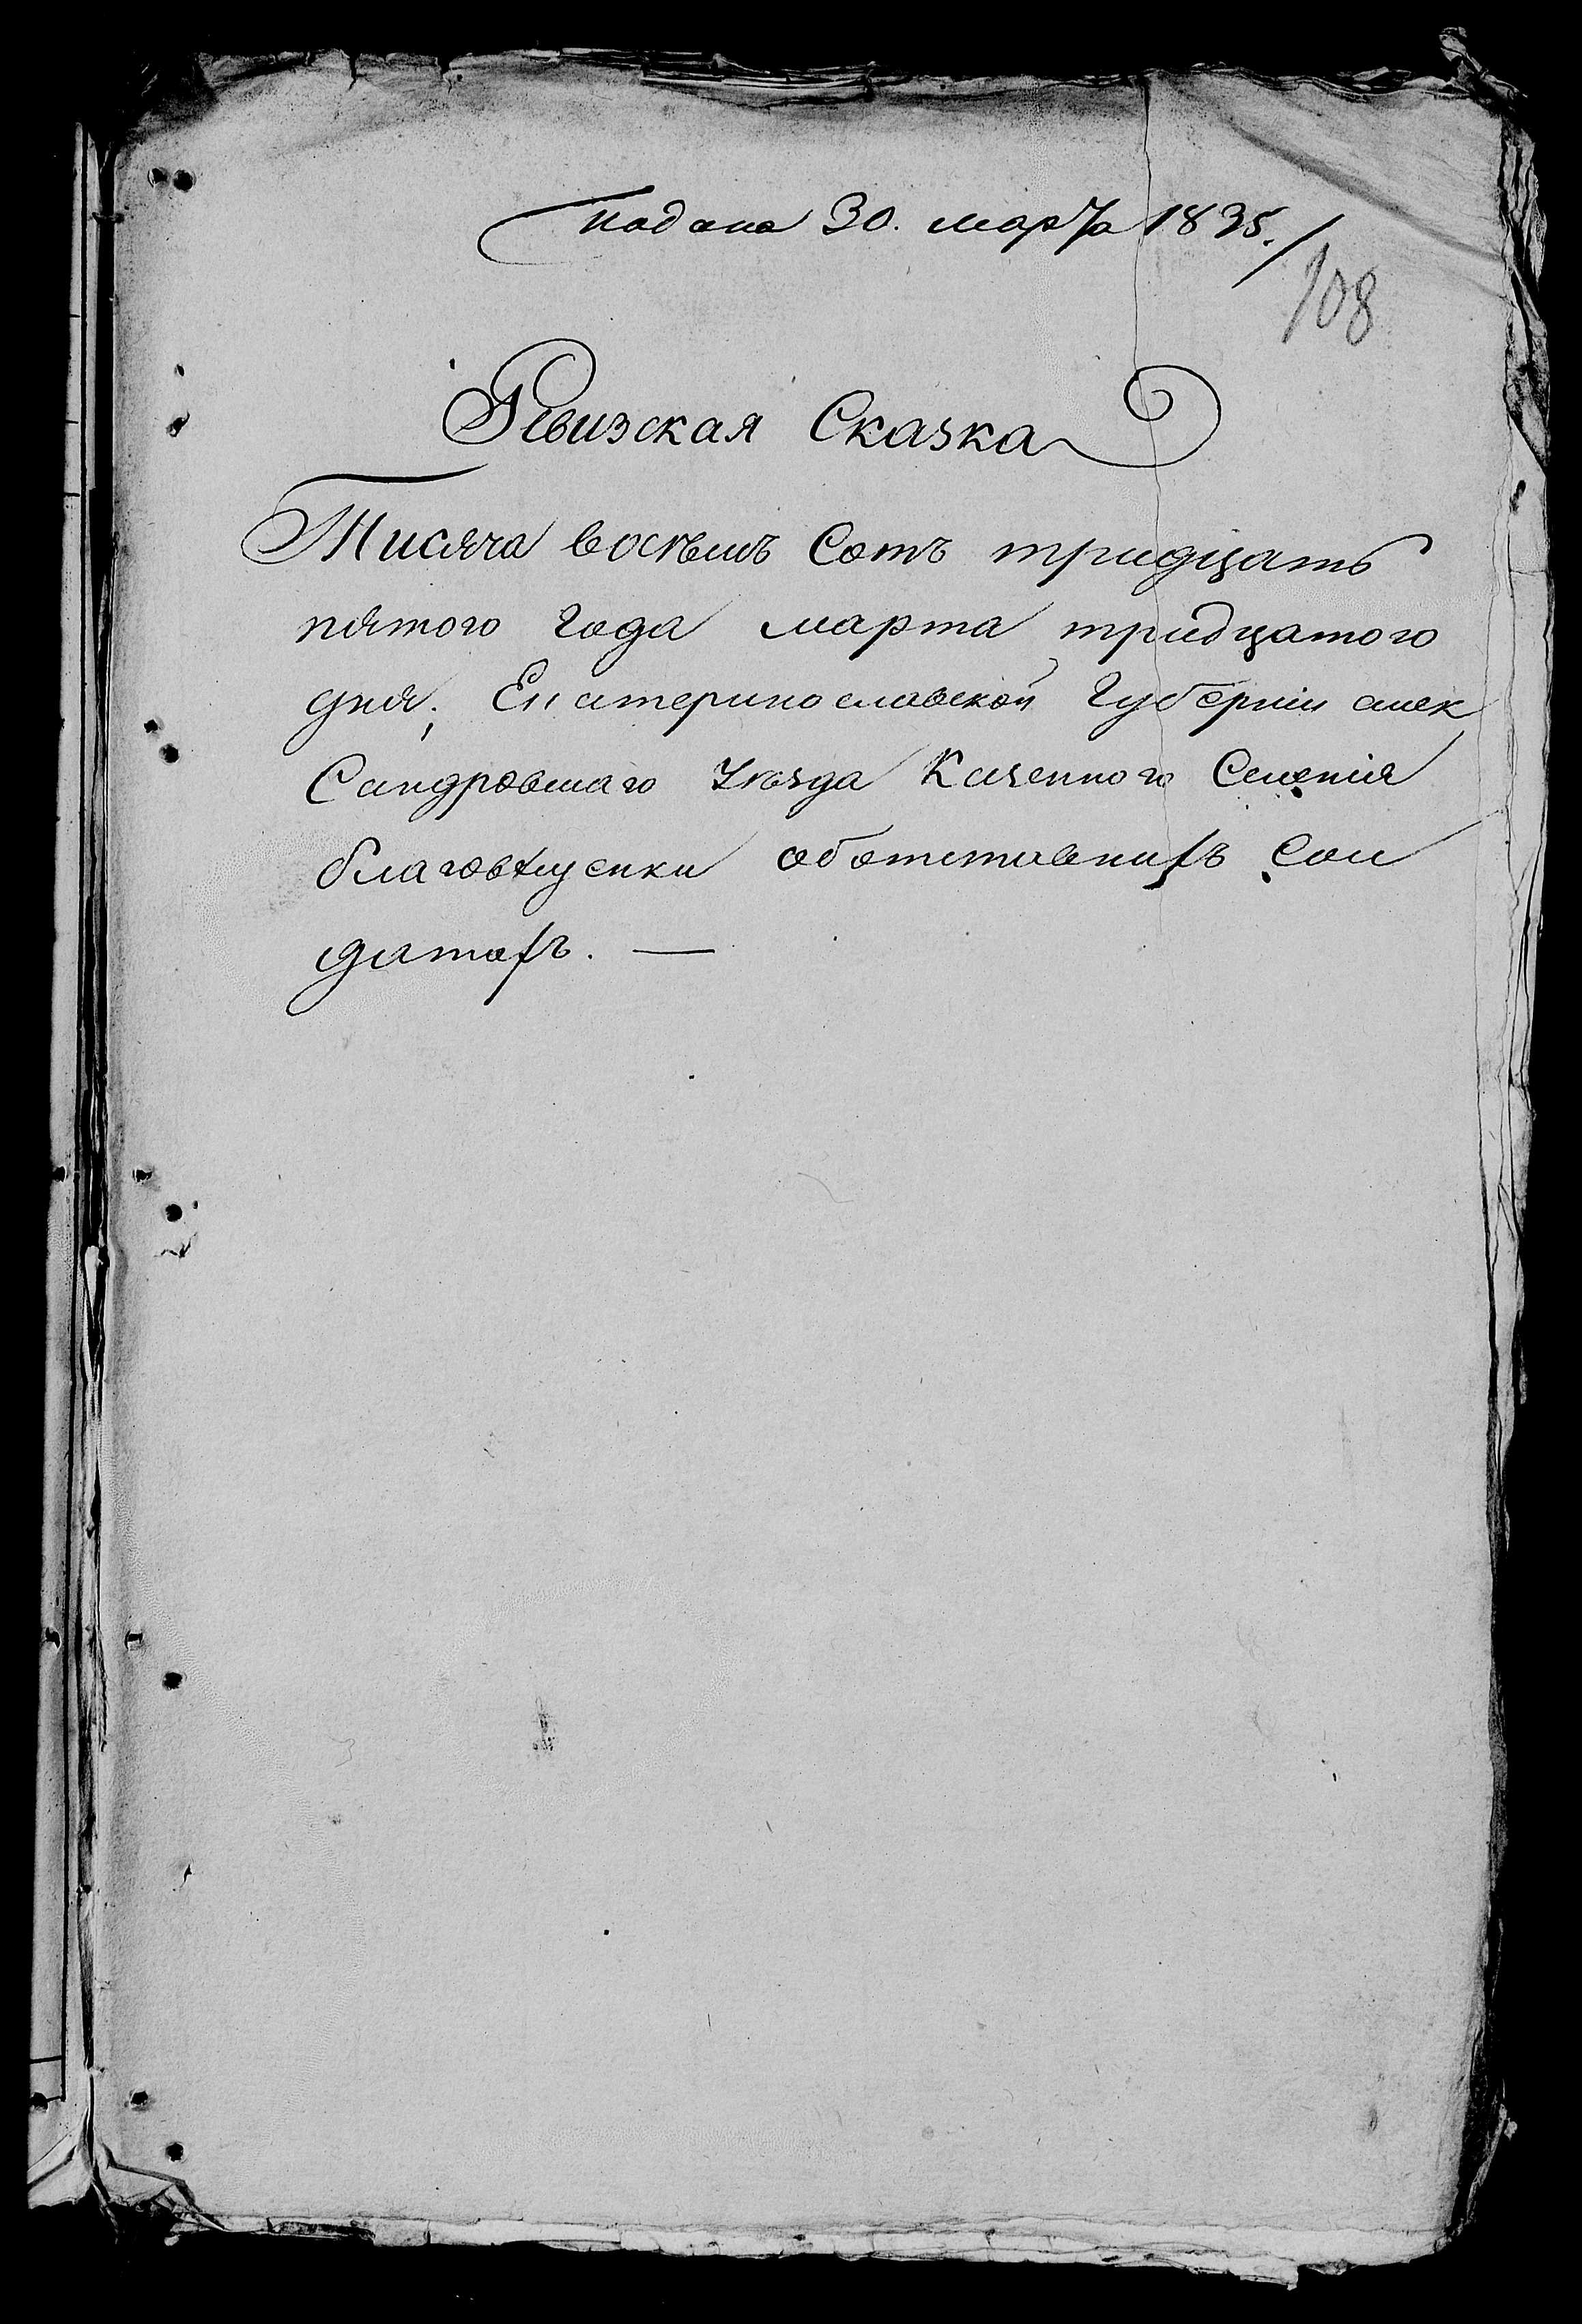 подана 30. марта 1835.
108
Ревизская Сказка
Тисяча восемъ Сотъ тридцать
пятого года марта тридцатого
дня, Екатеринославской Губерніи алек
Сандровшаго Уѣзда Казенного Селенія
благовѣщенки оботставнихъ Сол
датахъ. —